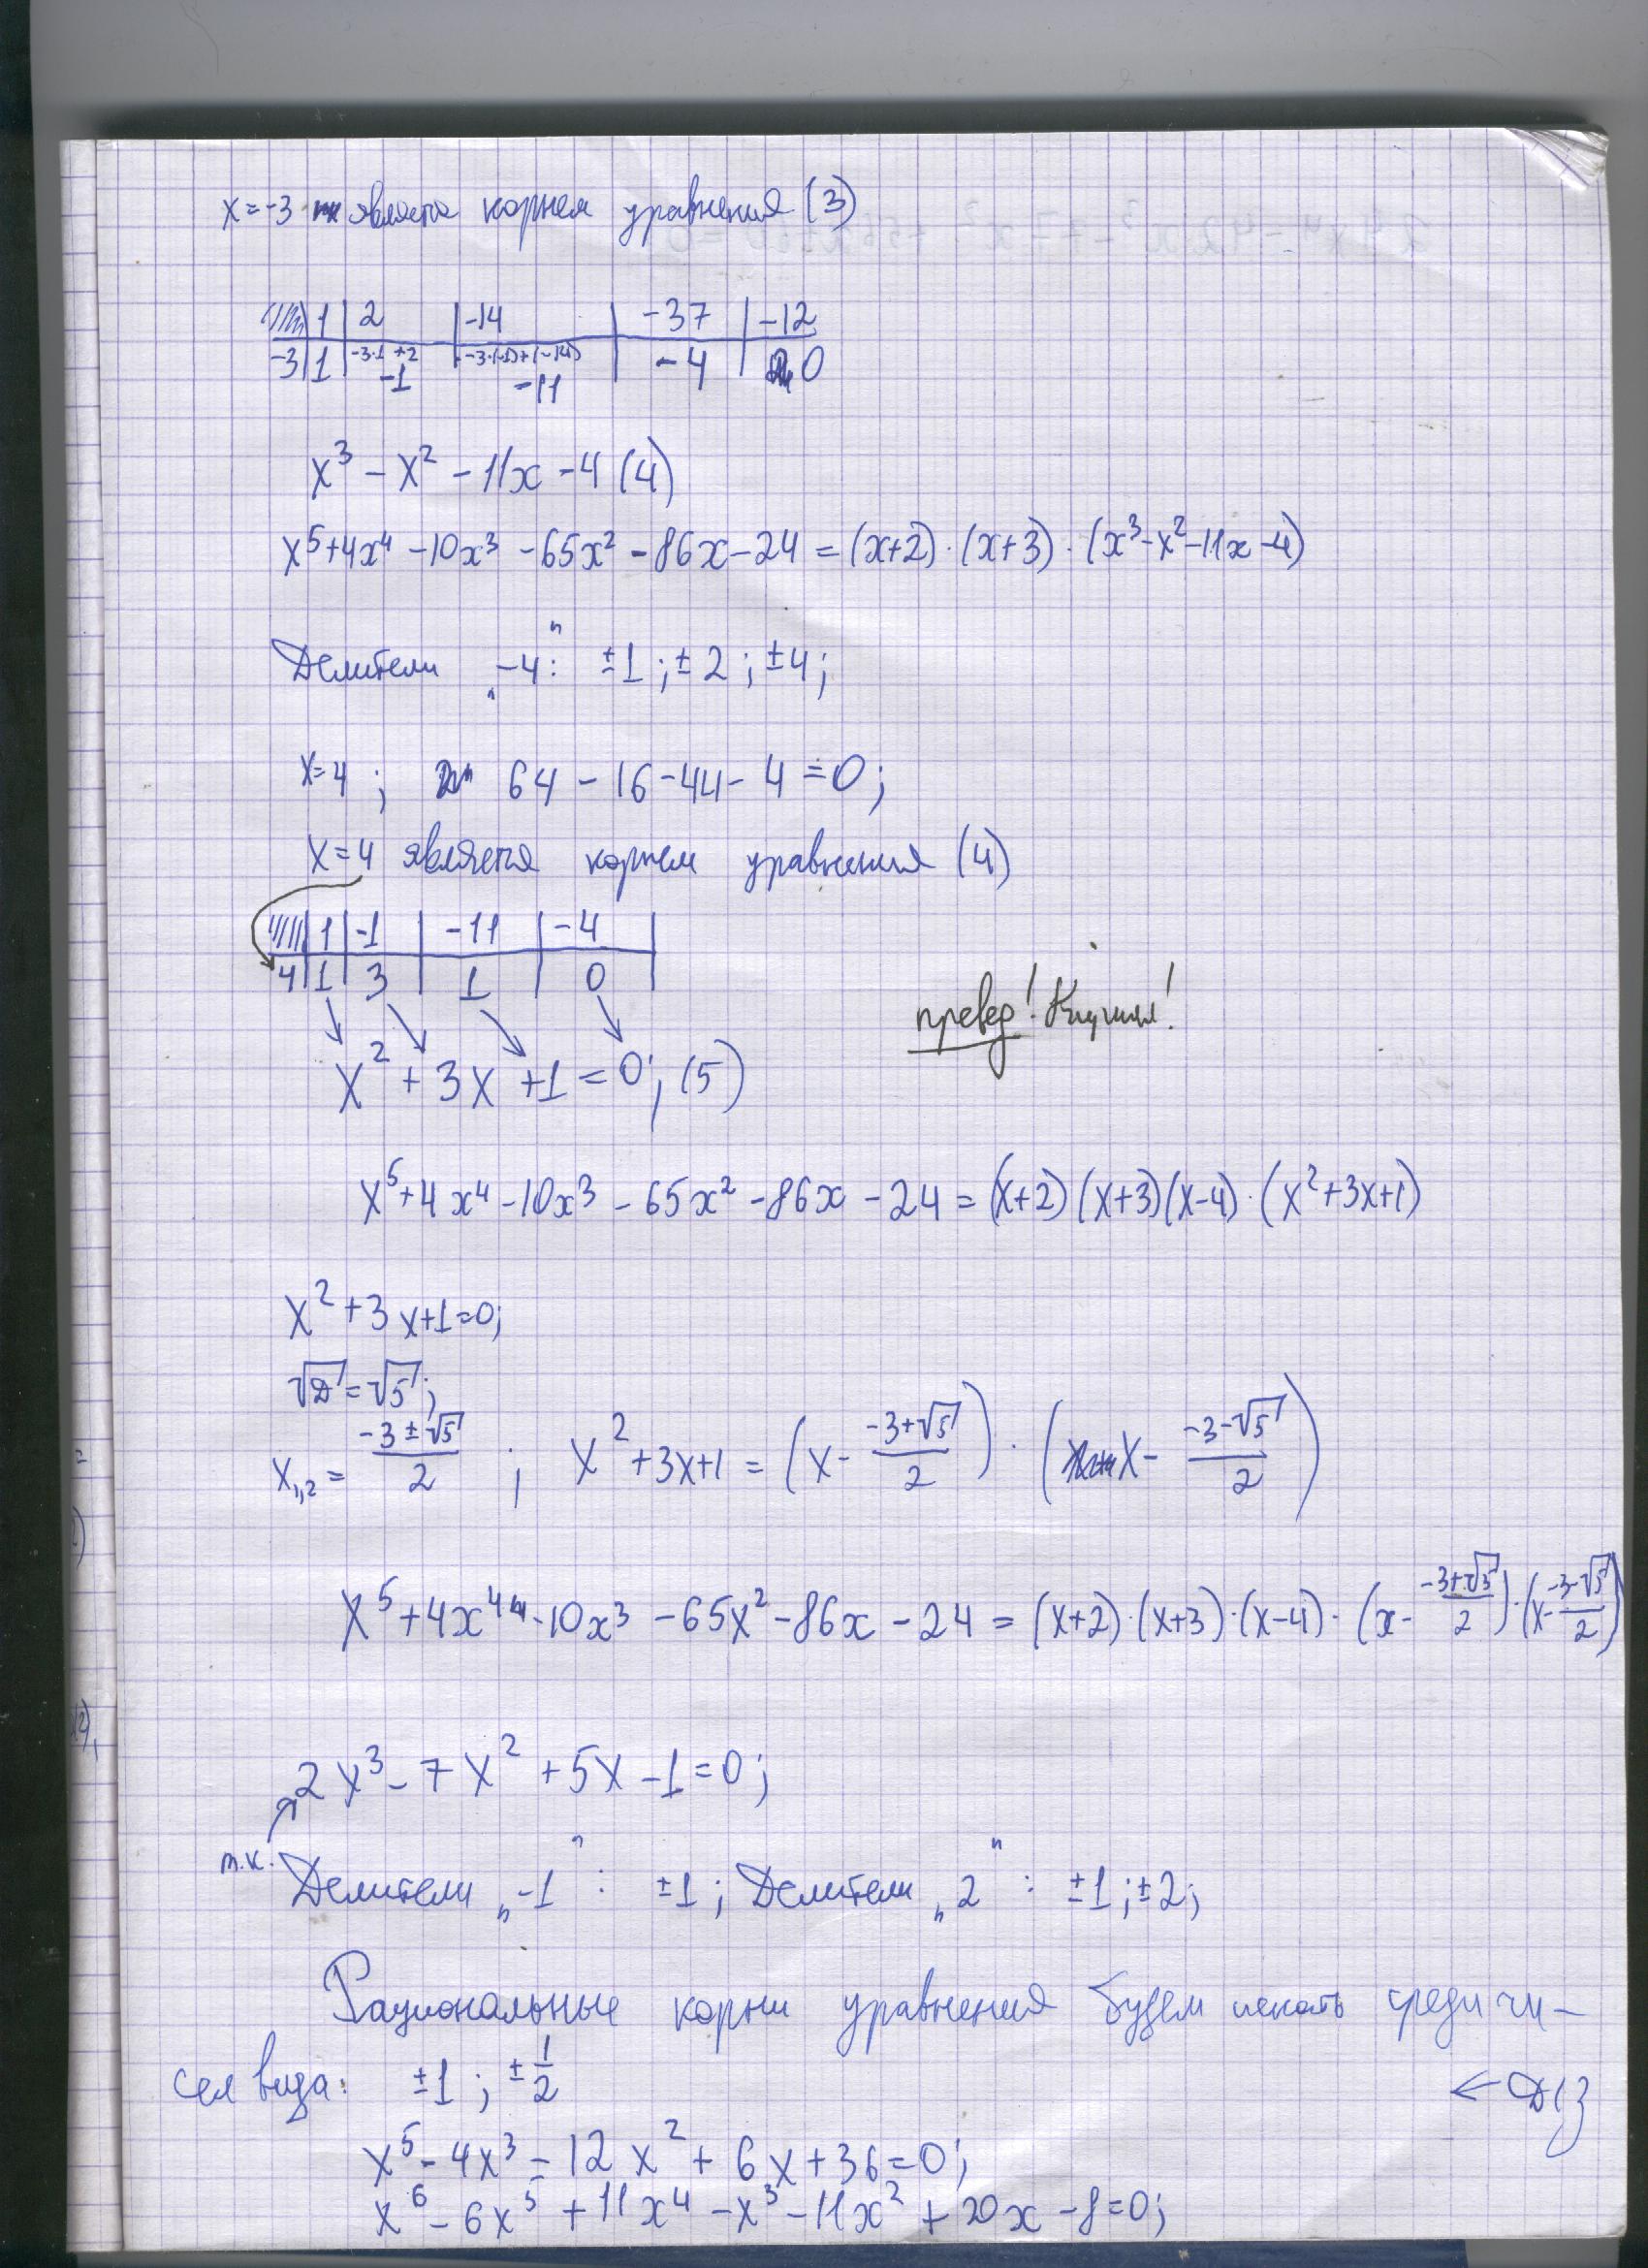 x=-3 является корнем уравнения (3)
1 | 2 | -14 | -37 | -12
-3 | 1 | -3·1+2 | -3·(-1)+(-14) | -4 | 0
-1 -11
x³ - x² - 11x - 4 (4)
x⁵+4x⁴ -10x³ -65x² -86x-24 = (x+2)·(x+3)·(x³-x²-11x-4)
Делители „-4": ±1; ±2; ±4;
x=4; 64 - 16 - 44 - 4 = 0;
x=4 является корнем уравнения (4)
1 | -1 | -11 | -4
4 | 1 | 3 | 1 | 0
x² + 3x + 1 = 0; (5)
превед!
x⁵+4x⁴-10x³ - 65x² - 86x - 24 = (x+2)(x+3)(x-4)·(x²+3x+1)
x² + 3x+1=0;
√D = √5;
x₁,₂ = (-3±√5)/2 ; x²+3x+1 = (x - (-3+√5)/2) · (x - (-3-√5)/2)
x⁵+4x⁴-10x³ -65x²-86x - 24 = (x+2)·(x+3)·(x-4)·(x - (-3+√5)/2)·(x - (-3-√5)/2)
2x³ - 7x² + 5x - 1 = 0;
т.к. Делители „-1": ±1; Делители „2": ±1; ±2;
Рациональные корни уравнения будем искать среди чи-
сел вида: ±1; ±1/2
← Д/З
x⁵ - 4x³ - 12x² + 6x + 36 = 0;
x⁶ - 6x⁵ + 11x⁴ - x³ - 11x² + 20x - 8 = 0;